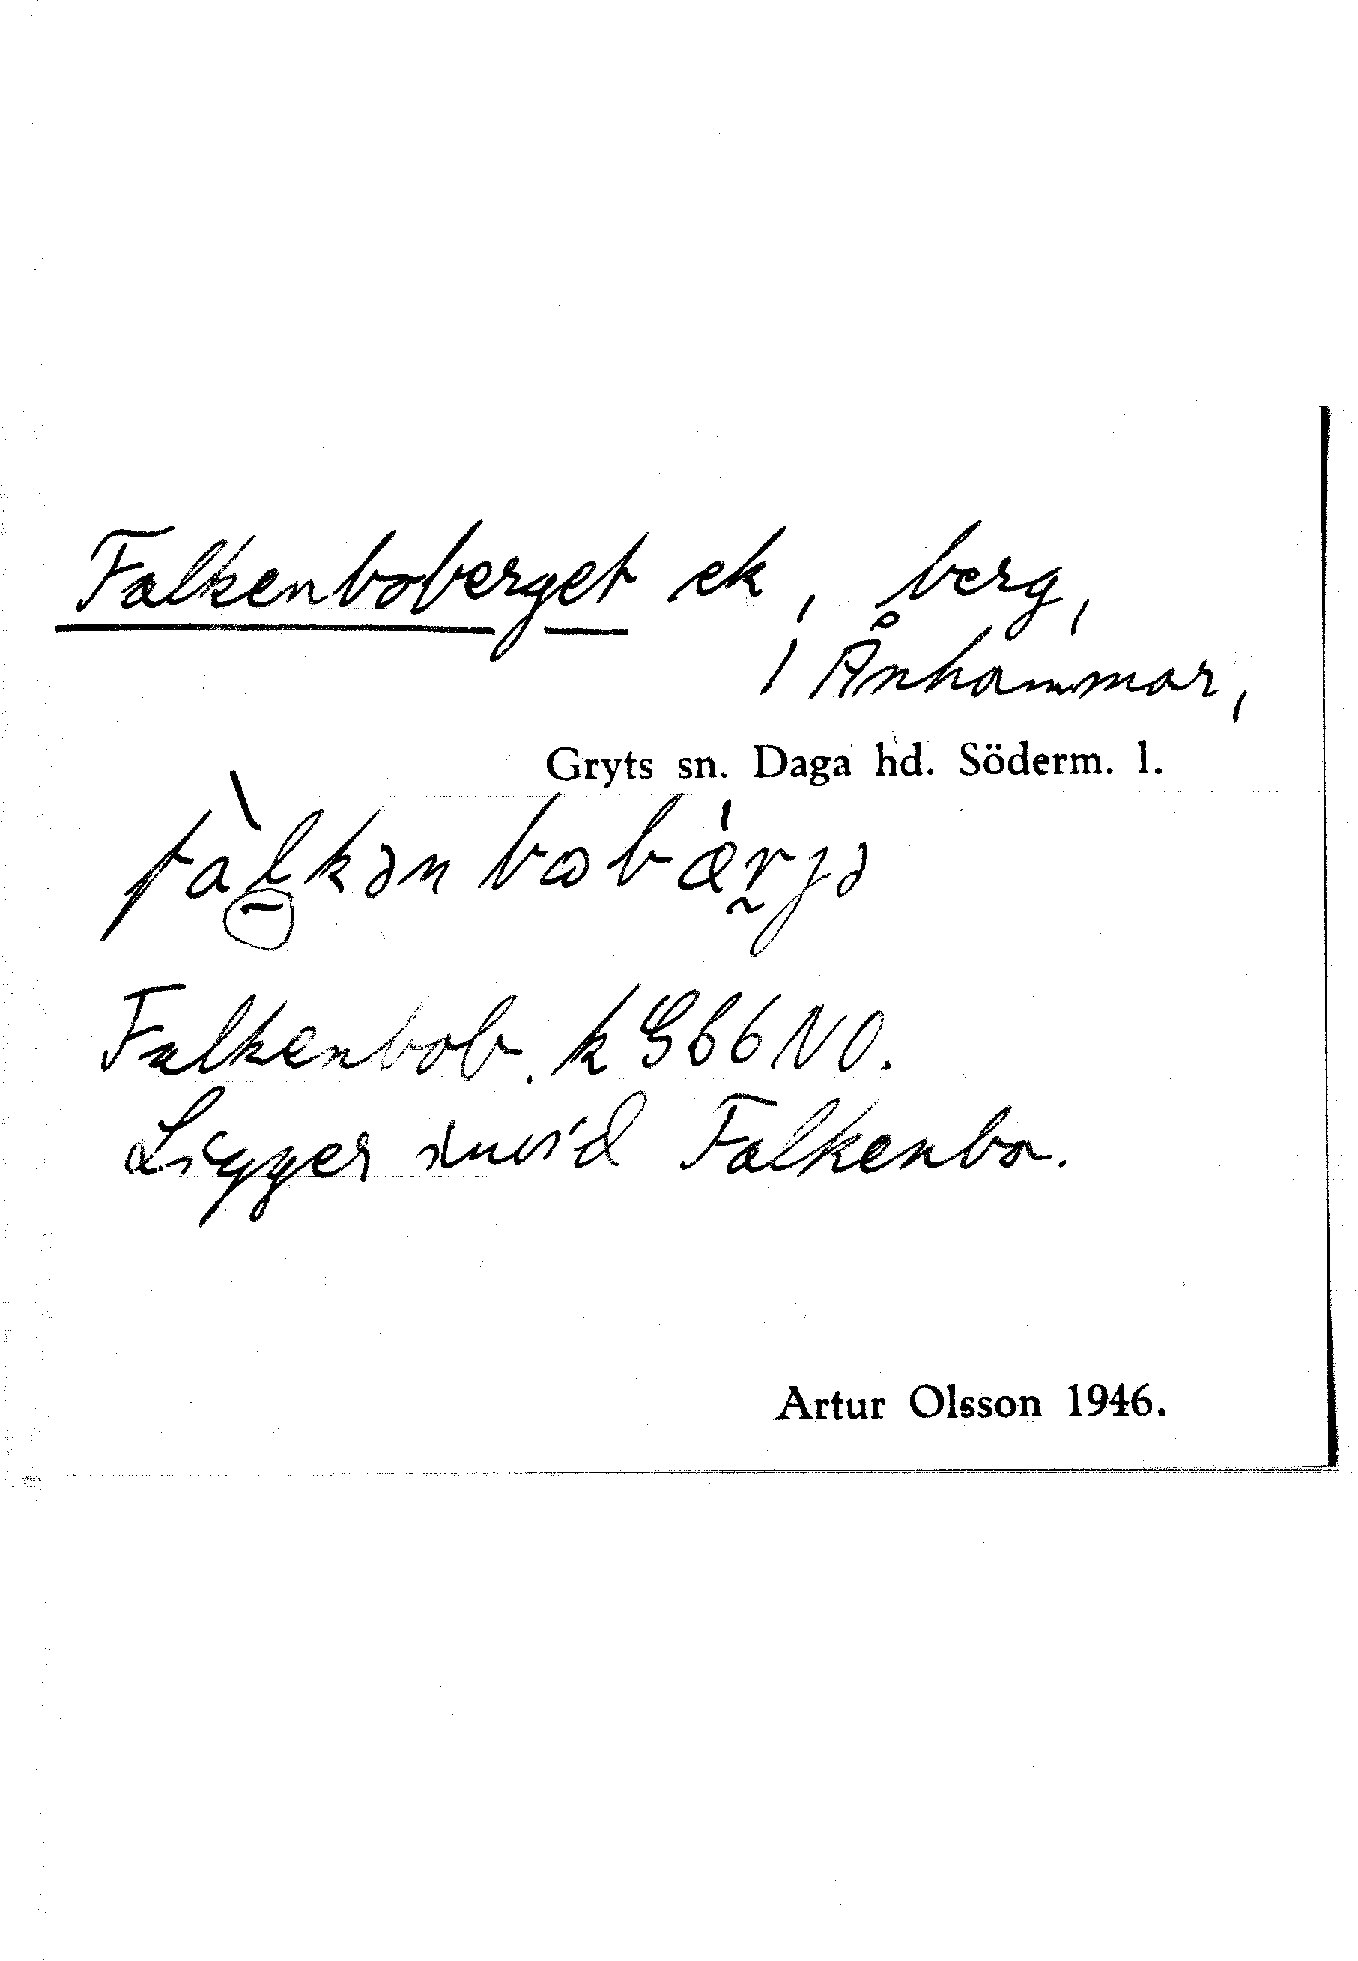 Falkenboberget ek, berg,
i Ånhammar,
Gryts sn. Daga hd. Söderm. l.
fàlkən bωbǽrjə
Falkenbob. k G66 NO.
Ligger invid Falkenbo.
Artur Olsson 1946.